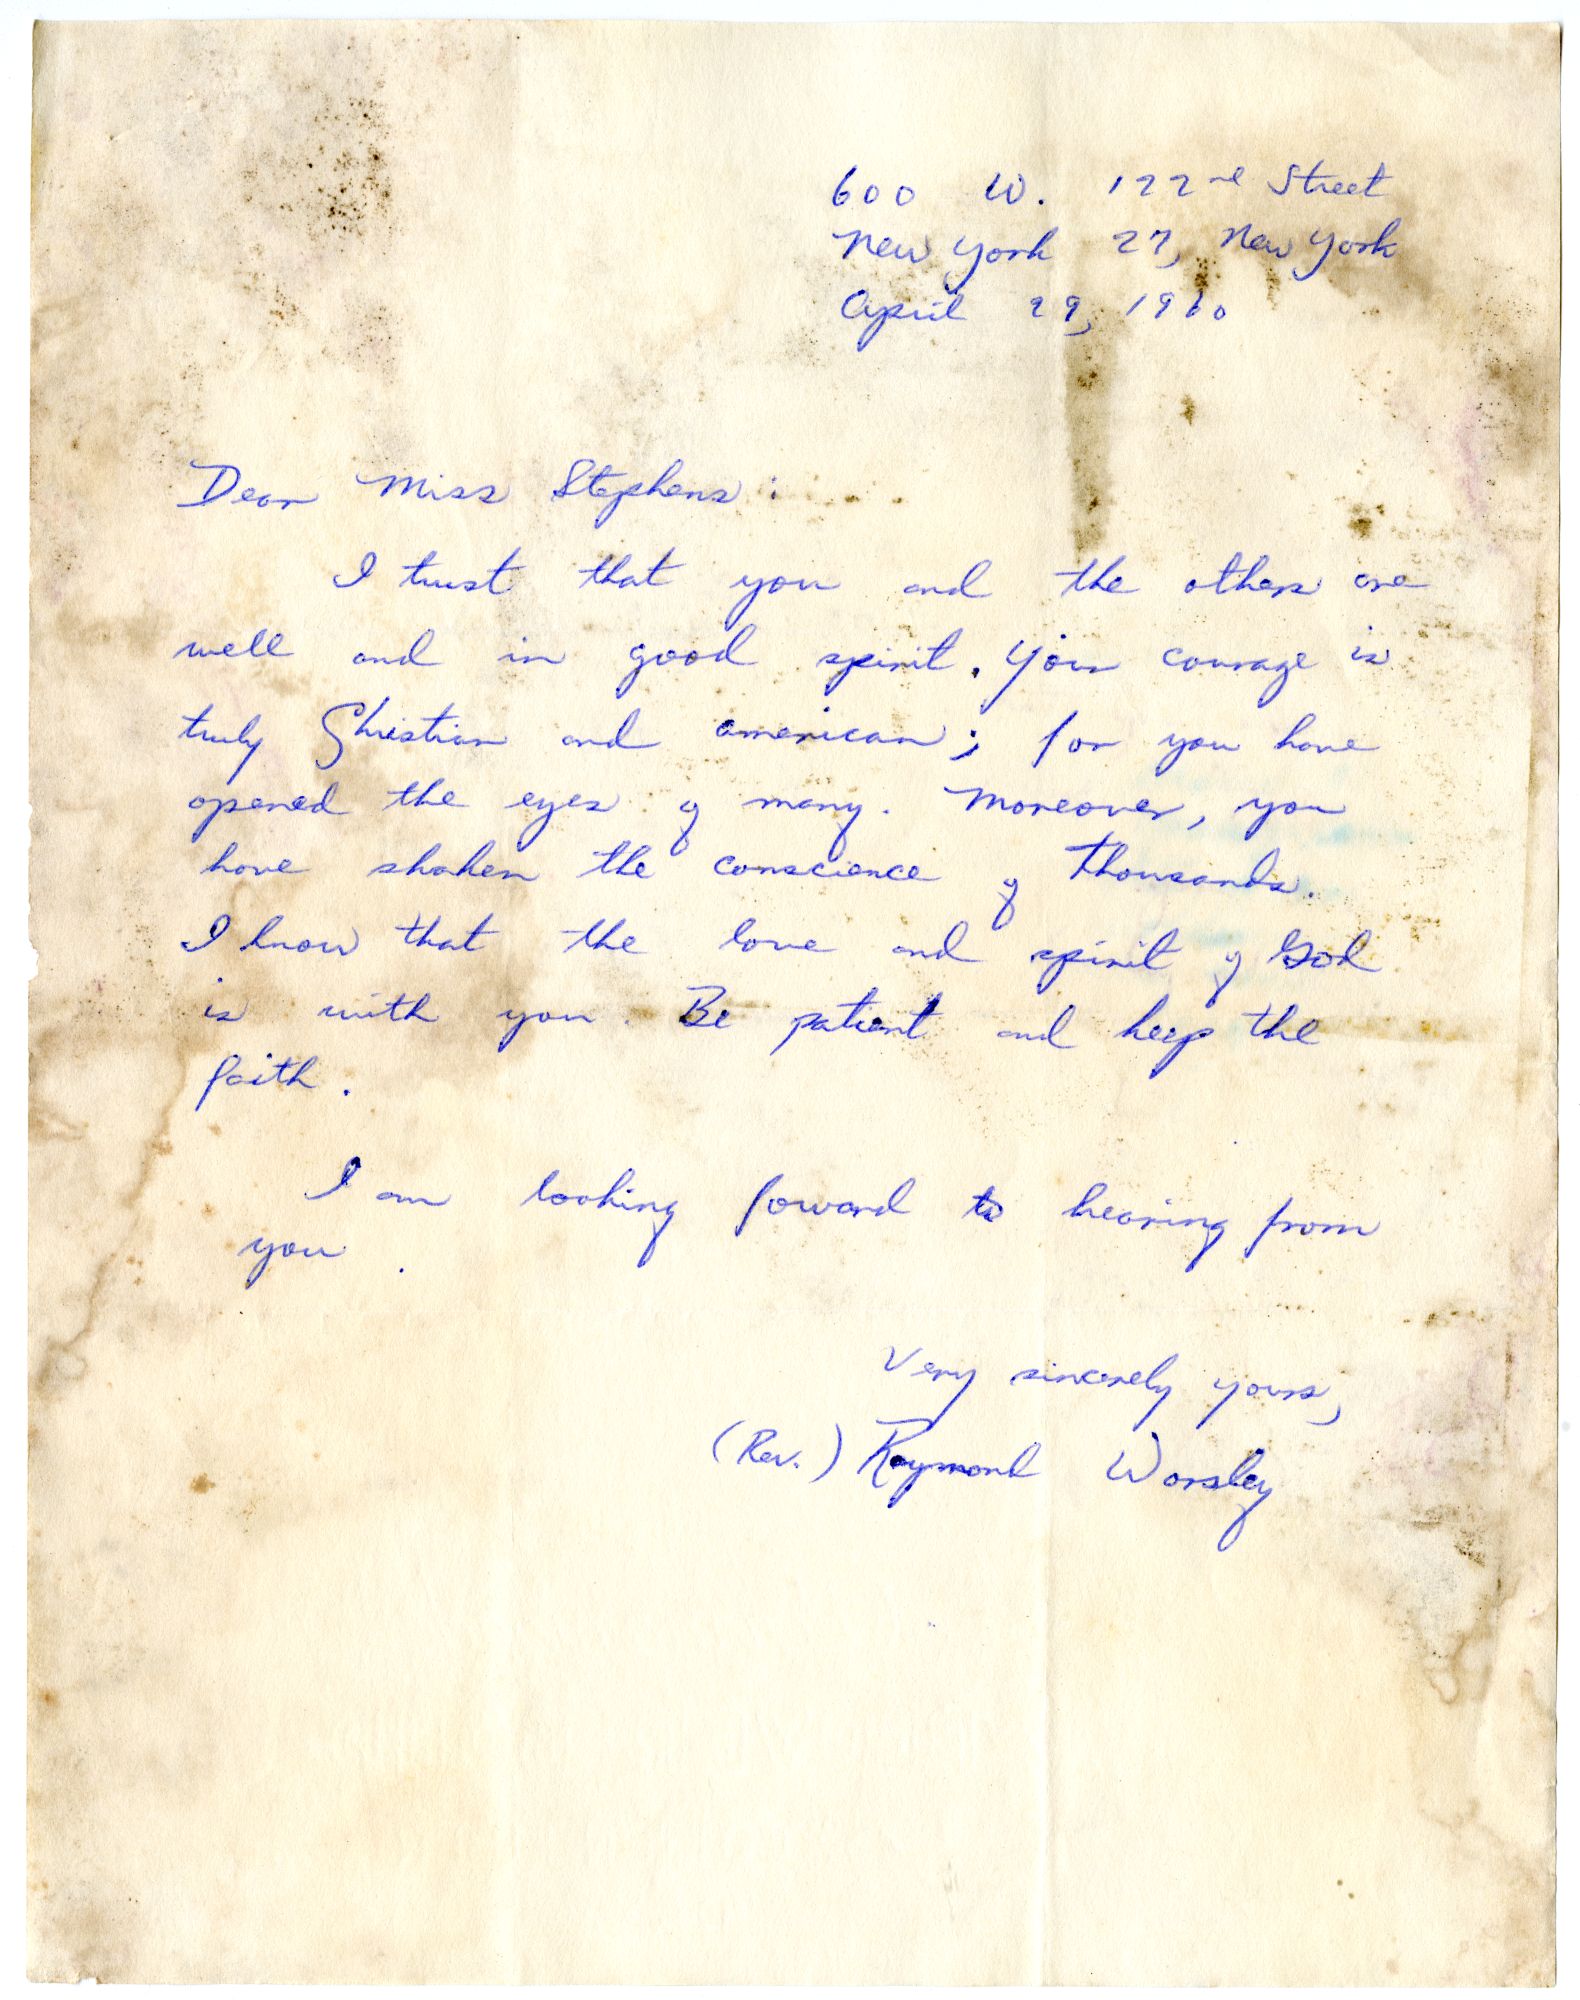 600 W. 122nd Street
New York 27, New York
April 29, 1960
Dear Miss Stephens:
I trust that you and the others are
well and in good spirit. Your courage is
truly Christian and american; for you have
opened the eyes of many. Moreover, you
have shaken the conscience of thousands.
I know that the love and spirit of God
is with you. Be patient and keep the
faith.
I am looking forward to hearing from
you.
Very sincerely yours,
(Rev.) Raymond Worsley